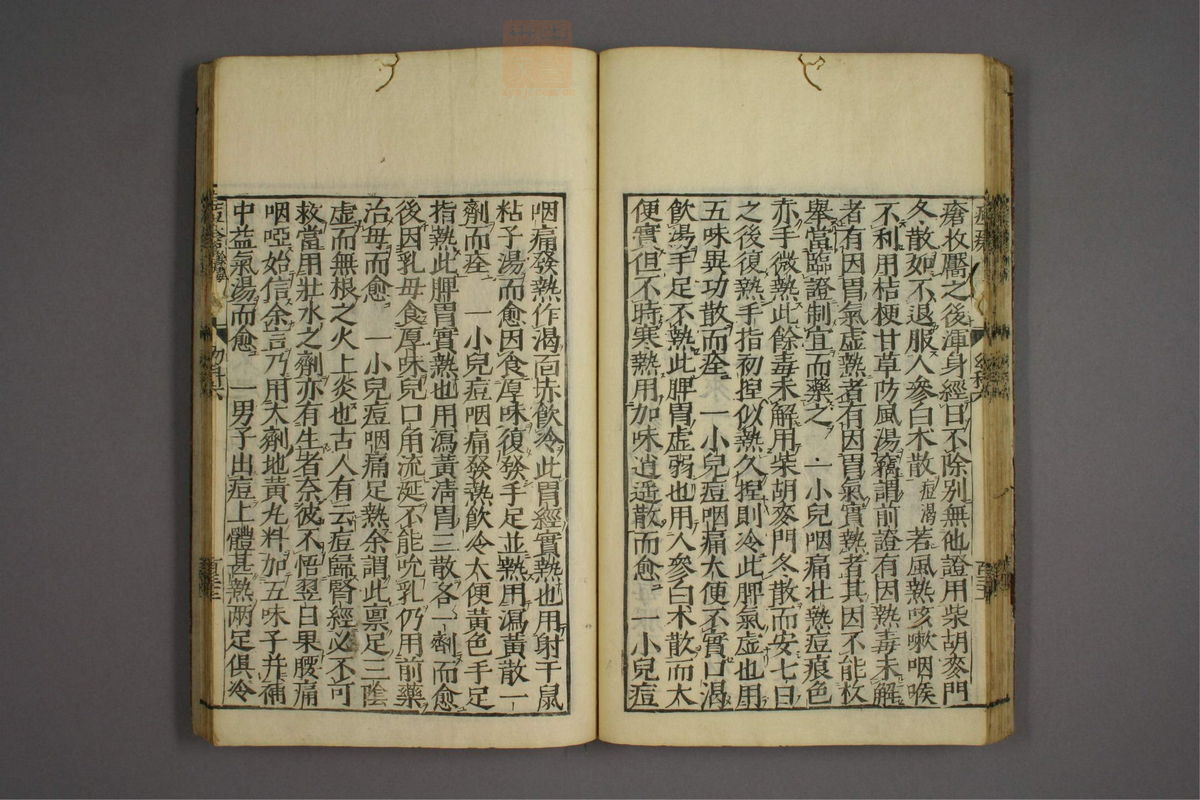 瘡枚靨之後渾身經日不除別無他證用柴胡麥門
冬散如不退服人參白朮散痘渴若風熱咳嗽咽喉
不利用桔梗甘草防風湯竊謂前證有因熱毒未解
者有因胃氣虛熱者有因胃氣實熱者其因不能枚
舉當臨證制宜而藥之　一小兒咽痛壯熱痘痕色
赤手微熱此餘毒未解用柴胡麥門冬散而安七日
之後復熱手指初捏似熱久捏則冷此脾氣虛也用
五味異功散而痊　一小兒痘咽痛大便不實口渴
飲湯手足不熱此脾胃虛弱也用人參白朮散而大
便實但不時寒熱用加味逍遥散而愈　一小兒痘
咽痛發熱作渴面赤飲冷此胃經實熱也用射干鼠
粘子湯而愈因食厚味復發手足並熱用瀉黃散一
劑而痊　一小兒痘咽痛發熱飲冷大便黃色手足
指熱此脾胃實熱也用瀉黃清胃三散各一劑而愈
後因乳母食厚味兒口角流涎不能吮乳仍用前藥
治母而愈　一小兒痘咽痛足熱余謂此禀足三陰
虛而無根之火上炎也古人有云痘歸腎經必不可
救當用壯水之劑亦有生者奈彼不悟翌日果腰痛
咽啞始信余言乃用大劑地黃丸料加五味子并補
中益氣湯而愈　一男子出痘上體甚熱兩足俱冷